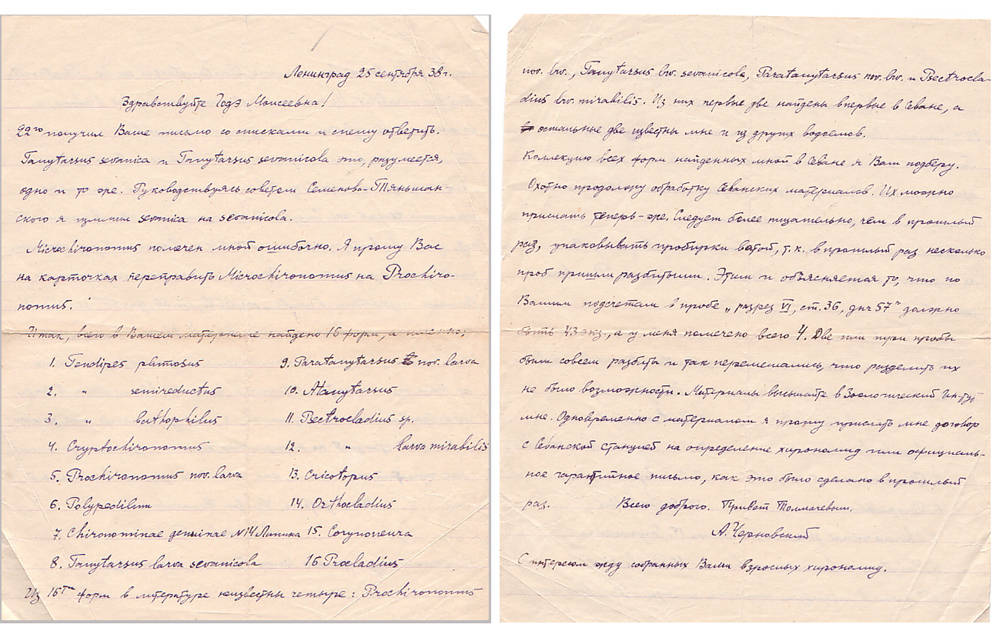 Ленинград 25 сентября 38 г.
Здравствуйте Годэ Моисеевна!
22го получил Ваше письмо со списками и спешу ответить.
Tanytarsus sevanica и Tanytarsus sevanicola это, разумеется,
одно и то же. Руководствуясь советом Семенова-Тяньшан-
ского я сменил sevanica на sevanicola.
Microchironomus помечен мной ошибочно. Я прошу Вас
на карточках переправить Microchironomus на Prochiro-
nomus.
Итак, всего в Вашем материале найдено 16 форм, а именно:
1. Tendipes plumosus
2. " semireductus
3. " bathophilus
4. Cryptochironomus
5. Prochironomus nov. larva
6. Polypedilum
7. Chironominae genuinae №14 Липина
8. Tanytarsus larva sevanicola
9. Paratanytarsus nov. larva
10. Atanytarsus
11. Psectrocladius sp.
12. " larva mirabilis
13. Cricotopus
14. Orthocladius
15. Corynoneura
16 Procladius
Из 16ти форм в литературе неизвестны четыре: Prochironomus
nov. lrv., Tanytarsus lrv. sevanicola, Paratanytarsus nov. lrv. и Psectrocla-
dius lrv. mirabilis. Из них первые две найдены впервые в Севане, а
остальные две известны мне и из других водоемов.
Коллекцию всех форм найденных мной в Севане я Вам подберу.
Охотно продолжу обработку Севанских материалов. Их можно
прислать теперь-же. Следует более тщательно, чем в прошлый
раз, упаковывать пробирки ватой, т.к. в прошлый раз несколько
проб пришли разбитыми. Этим и объясняется то, что по
Вашим подсчетам в пробе „разрез VI, ст. 36, дня 57" должно
быть 43 экз., а у меня помечено всего 4. Две или три пробы
были совсем разбиты и так перемешались, что разделить их
не было возможности. Материалы высылайте в Зоологический Ин-тут
мне. Одновременно с материалом я прошу прислать мне договор
с Севанской станцией на определение хирономид или официаль-
ное гарантийное письмо, как это было сделано в прошлый
раз. Всего доброго. Привет Толмачевым.
А. Черновский
С интересом жду собранных Вами взрослых хирономид.